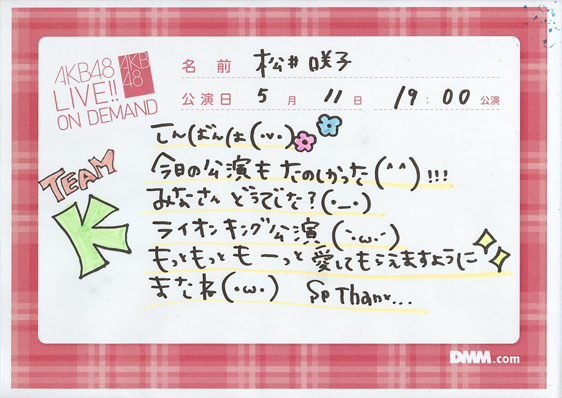 AKB48
LIVE!!
ON DEMAND
AKB
48
名前 松井咲子
公演日 5月 11日 19:00 公演
TEAM
K
こんばんは(・v・)
今日の公演もたのしかった(^^)!!!
みなさんどうでした?(・_・)
ライオンキング公演(´・ω・`)
もっともっともーっと愛してもらえますように
またね(・ω・) Sp Thanx...
DMM.com